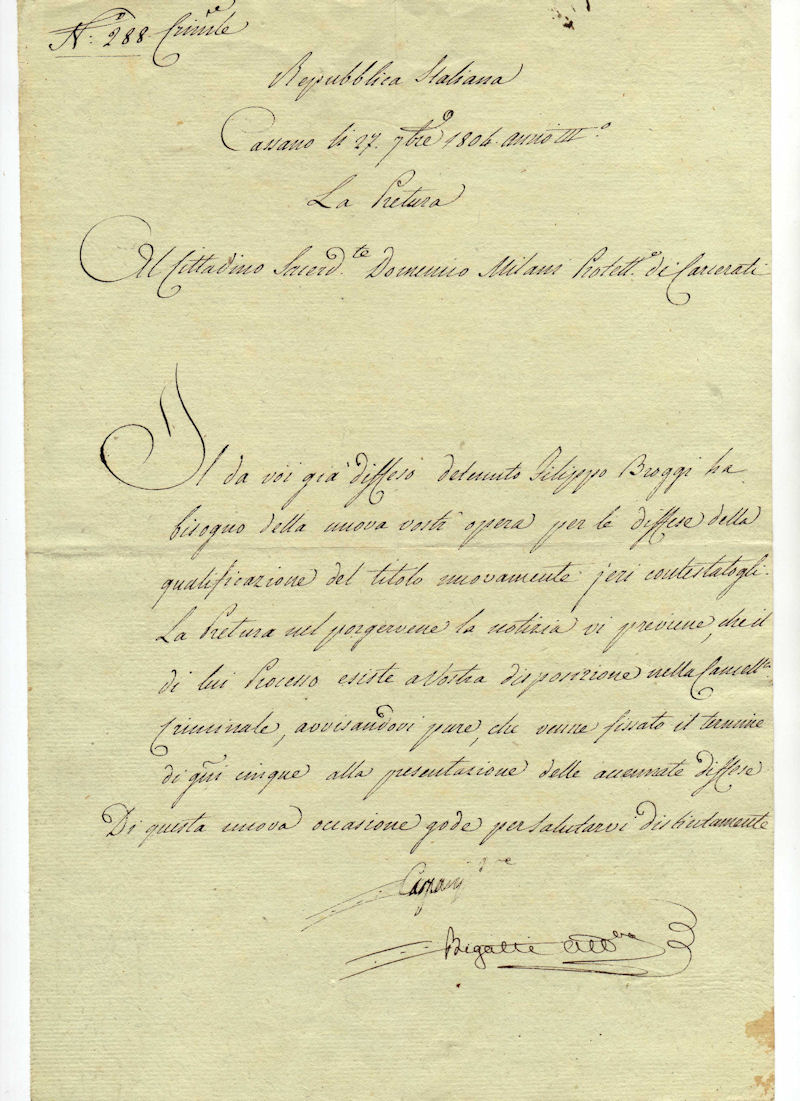 N.º 288 Crim.le
Repubblica Italiana
Cassano li 27. 7bre 1804. anno III.º
La Pretura
Al Cittadino Sacerd.te Domenico Milani Protett.e di Carcerati
Il da voi già diffeso detenuto Filippo Broggi ha
bisogno della nuova vostr' opera per le diffese della
qualificazione del titolo nuovamente jeri contestatogli.
La Pretura nel porgervene la notizia vi previene, che il
di lui Processo esiste a Vostra disposizione nella Cancell.ria
Criminale, avvisandovi pure, che venne fissato il termine
di g.ni cinque alla presentazione delle accennate diffese
Di questa nuova occasione gode per salutarvi distintamente